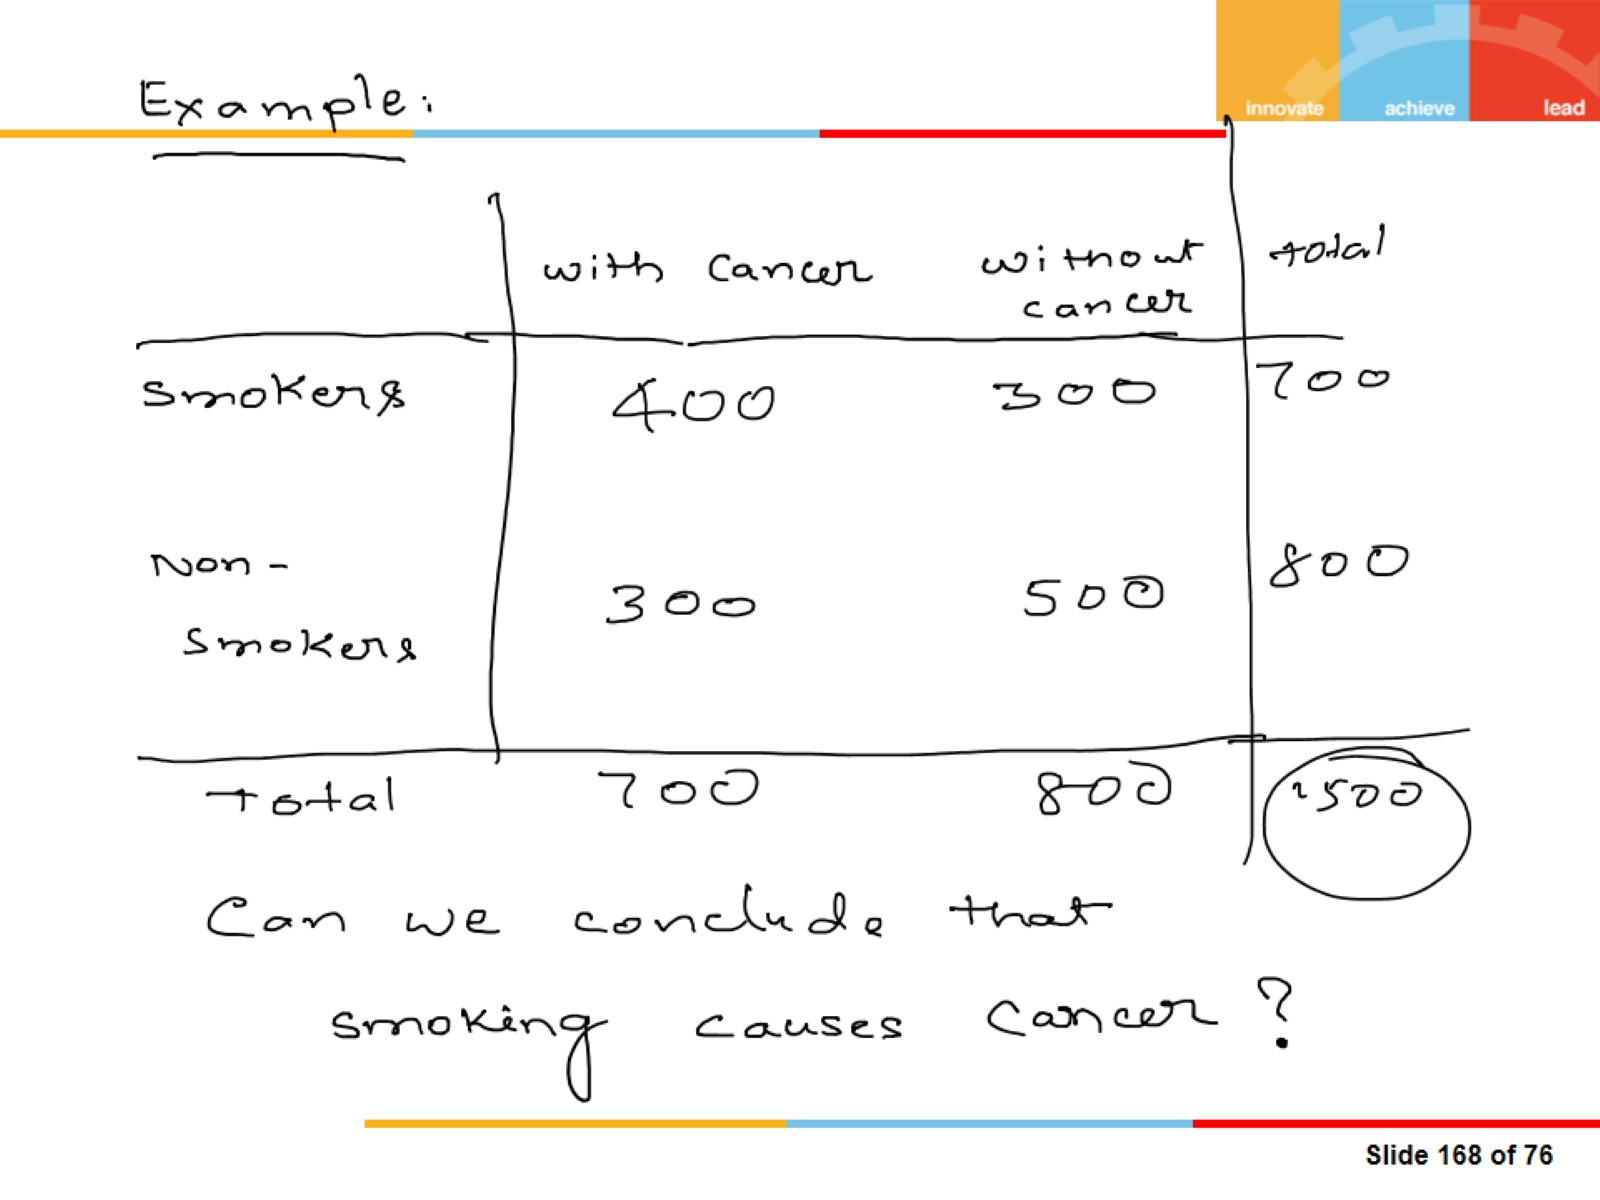 innovate achieve lead
Example:
with cancer without cancer total
Smokers 400 300 700
Non-
Smokers 300 500 800
Total 700 800 1500
Can we conclude that
smoking causes cancer?
Slide 168 of 76